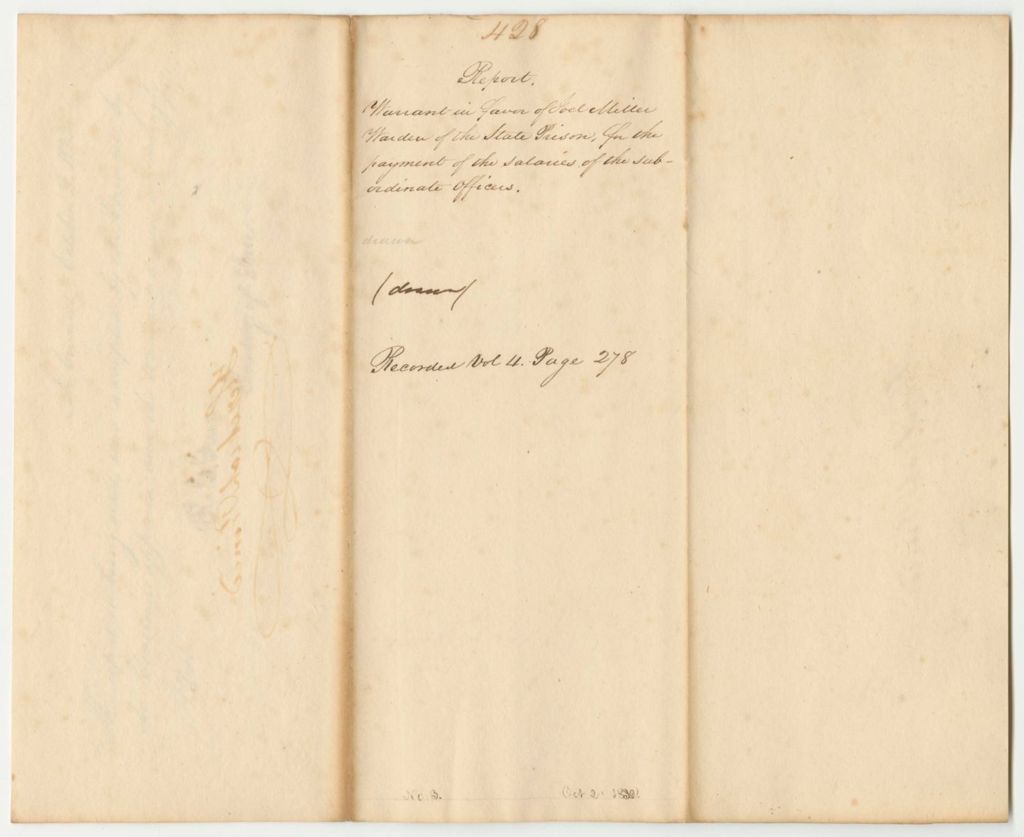 428
Report.
Warrant in favor of Joel Miller
Warden of the State Prison, for the
payment of the salaries of the sub-
ordinate officers.
drawn
(drawn)
Recorded Vol 4. Page 278
No. 3. Oct 2